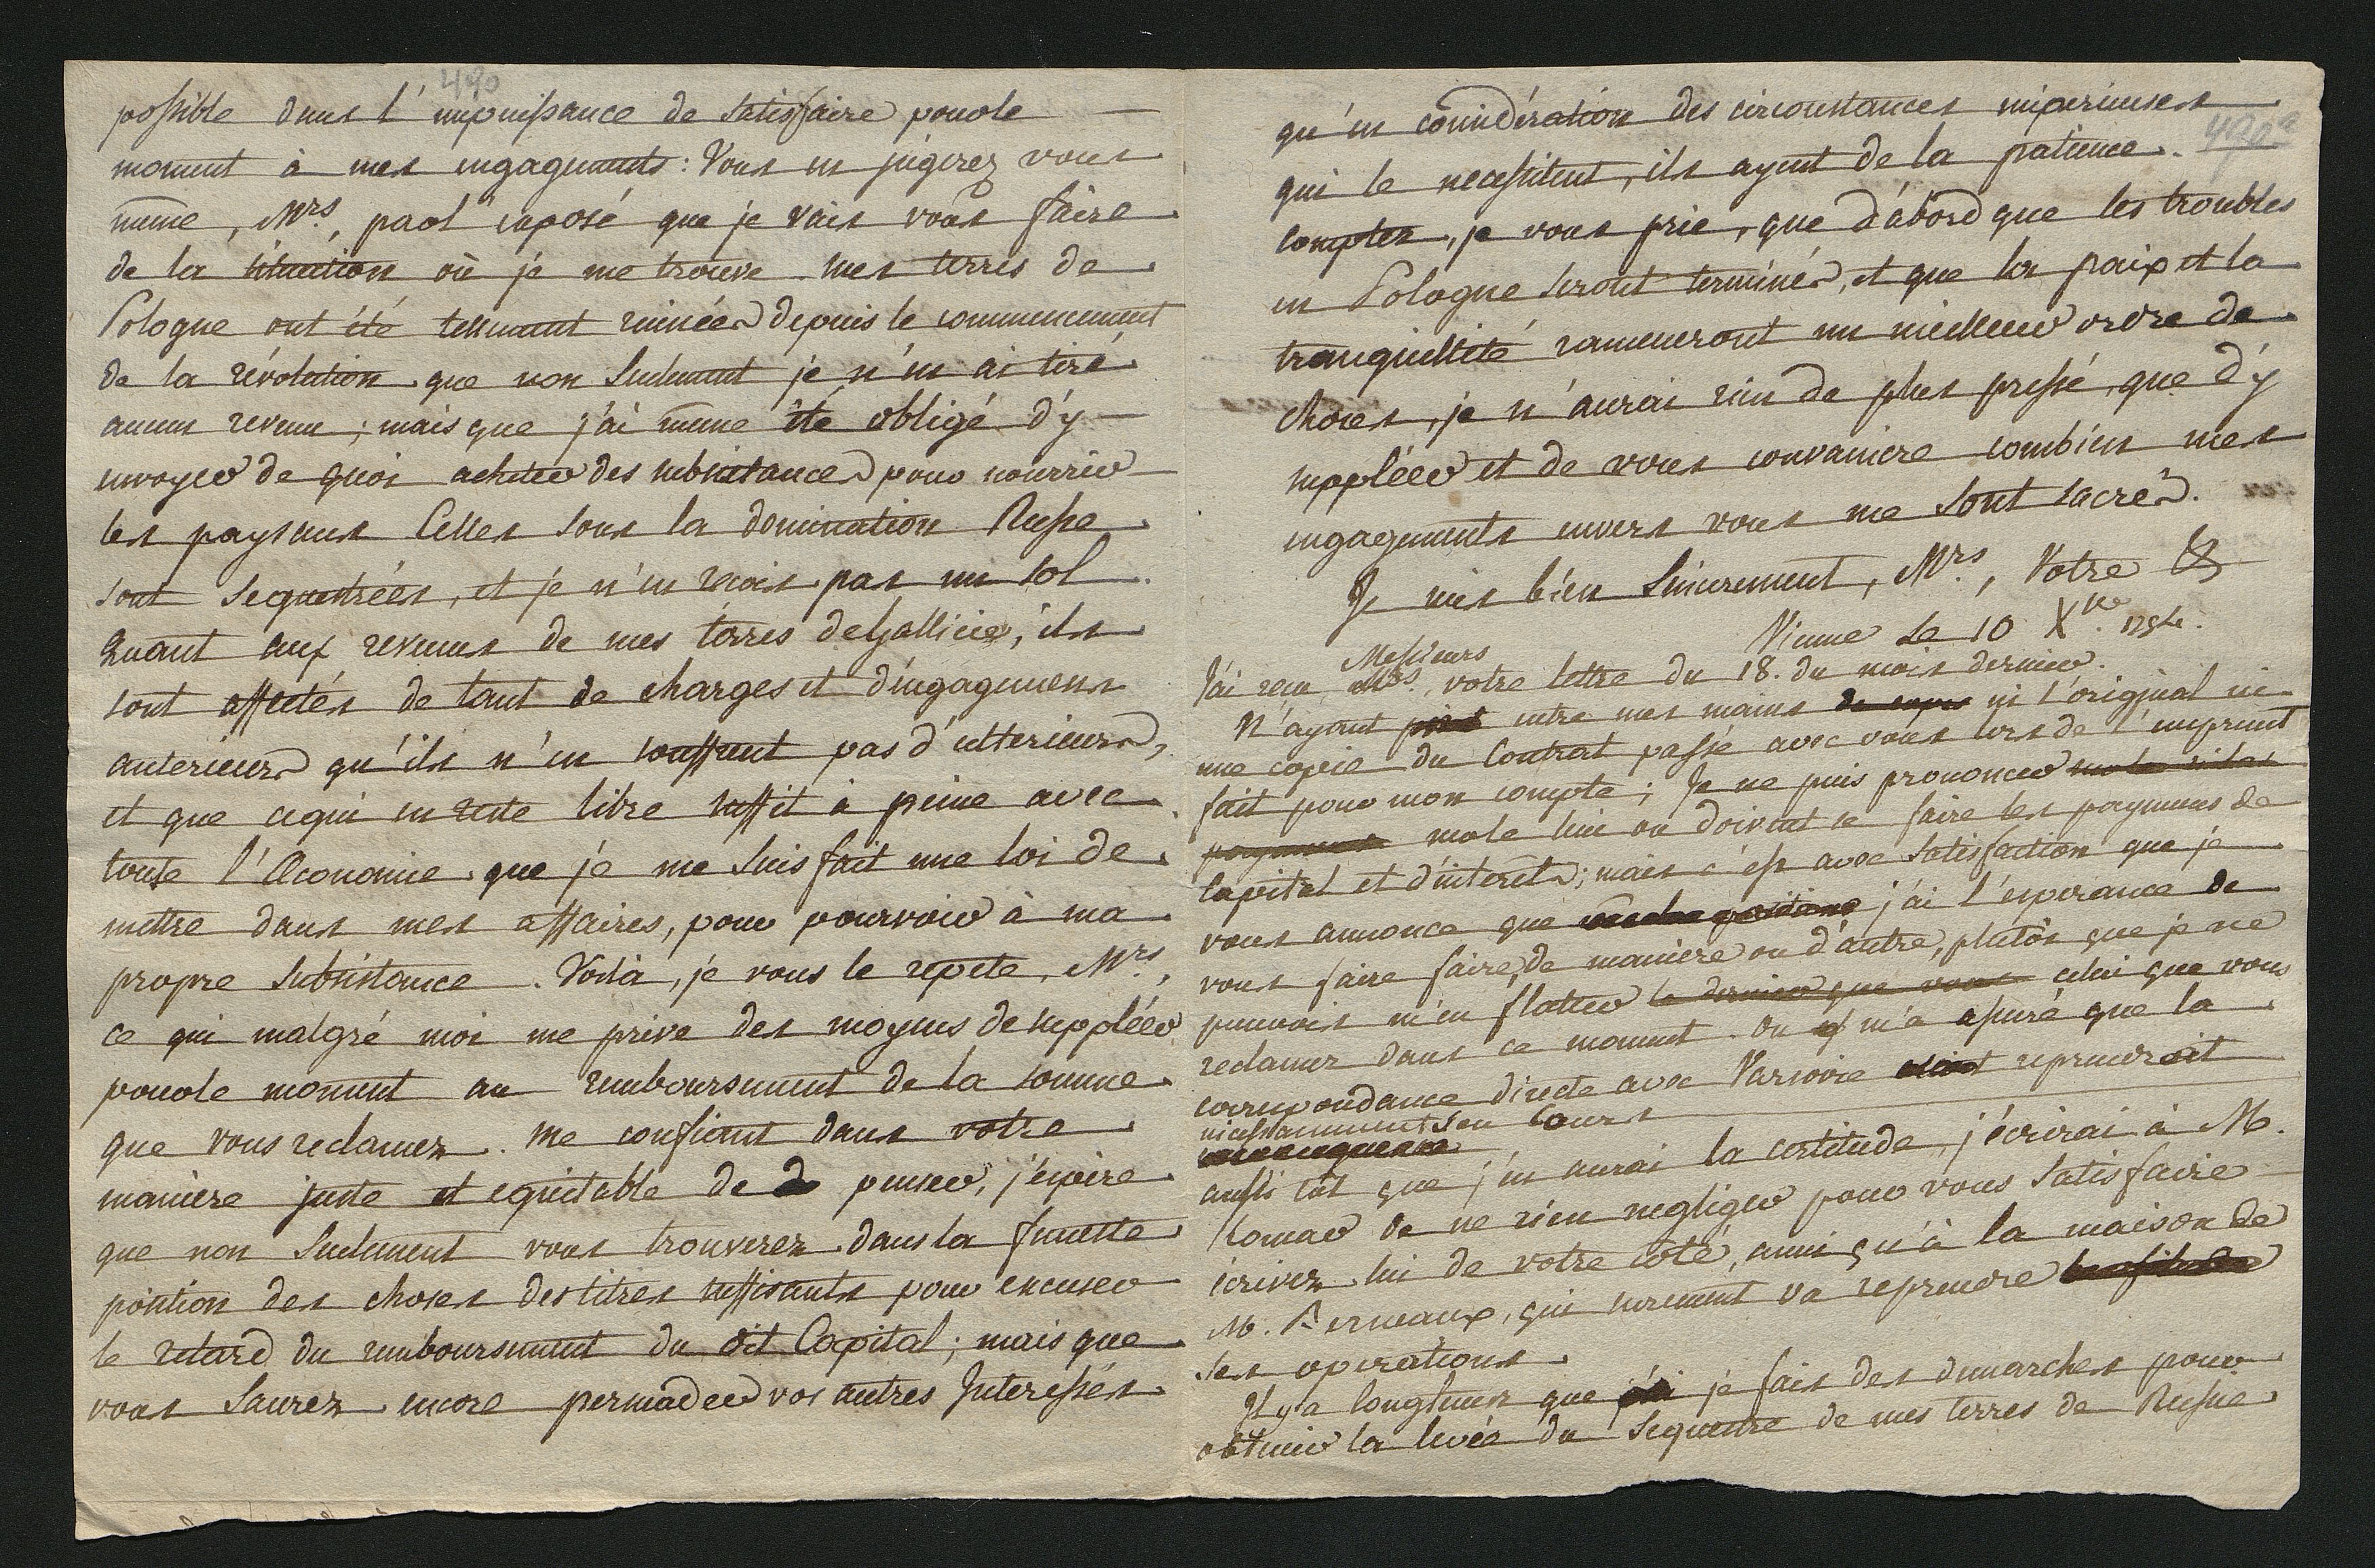 490
possible dans l'impuissance de satisfaire pour le
moment à mes engagements: Vous en jugerez vous
même, Mrs, par l'exposé que je vais vous faire
de la situation où je me trouve. Mes terres de
Pologne ont été tellement ruinées depuis le commencement
de la révolution que non seulement je n'en ai tiré
aucun revenu; mais que j'ai meme été obligé d'y
envoyer de quoi acheter des subsistances pour nourrir
les paysans Celles sous la domination Russe
sont sequestrées, et je n'en reçois pas un sol
Quant aux revenus de mes terres de Gallicie, ils
sont affectés de tant de charges et d'engagemens
anterieurs qu'ils n'en souffrent pas d'ulterieurs,
et que ce qui en reste libre suffit à peine avec
toute l'Œconomie que je me suis fait une loi de
mettre dans mes affaires, pour pourvoir à ma
propre subsistance. Voilà, je vous le repete, Mrs,
ce qui malgré moi me prive des moyens de suppléer
pour le moment au remboursement de la somme
que vous reclamez. Me confiant dans votre
maniere juste et equitable de penser, j'espère
que non seulement vous trouverez dans la funeste
position des choses des titres suffisants pour excuser
le retard du remboursement du dit Capital; mais que
vous saurez encore persuader vos autres Interessés
qu'en considération des circonstances imperieuses
490a
qui le necessitent, ils ayent de la patience.
Comptez, je vous prie, que d'abord que les troubles
en Pologne seront terminés, et que la paix et la
tranquillité rameneront un meilleur ordre de
choses, je n'aurai rien de plus pressé, que d'y
suppléer et de vous convaincre combien mes
engagements envers vous me sont sacrés.
Je suis bien sincerement, Mrs, Votre &
Vienne le 10 Xbre 1794.
Messieurs
J'ai reçu Mrs, votre lettre du 18. du mois dernier.
N'ayant point entre mes mains ni l'original ni
une copie du Contrat passé avec vous lors de l'emprunt
fait pour mon compte; Je ne puis prononcer
payemens sur le lieu où doivent se faire les payemens de
Capital et d'interets; mais c'est avec satisfaction que je
vous annonce que j'ai l'esperance de
vous faire faire, de maniere ou d'autre, plutôt que je ne
pouvois m'en flatter le dernier que vous celui que vous
reclamez dans ce moment. On m'a assuré que la
correspondance directe avec Varsovie reprendroit
incessamment son Cours
aussi tôt que j'en aurai la certitude, j'écrirai à M.
de ne rien negliger pour vous satisfaire
écrivez lui de votre côté, ainsi qu'à la maison de
M. Bernaux, qui surement va reprendre
ses operations.
Il y a longtems que j'ai je fais des demarches pour
obtenir la levée du sequestre de mes terres de Russie